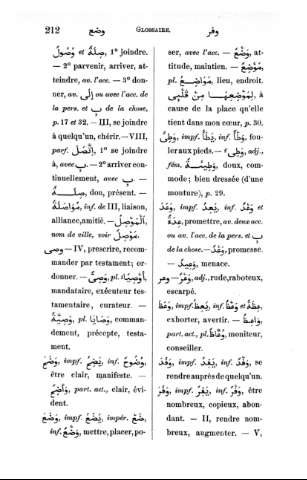 212 وضع GLOSSAIRE. وقر
صِلَةٌ et وُصُولٌ, 1° joindre.
— 2° parvenir, arriver, at-
teindre, av. l'acc. — 3° don-
ner, av. إِلَى ou avec l'acc. de
la pers. et بِ de la chose,
p. 17 et 32. — III, se joindre
à quelqu'un, chérir. — VIII,
parf. اِتَّصَلَ, 1° se joindre
à, avec بِ. — 2° arriver con-
tinuellement, avec بِ. —
صِلَةٌ, don, présent. —
مُوَاصَلَةٌ, inf. de III, liaison,
alliance, amitié. — اَلْمَوْصِلُ,
nom de ville, voir مَوْصِلٌ.
وصى — IV, prescrire, recom-
mander par testament; or-
donner. — وَصِيٌّ, pl. أَوْصِيَاءُ,
mandataire, exécuteur tes-
tamentaire, curateur. —
وَصِيَّةٌ, pl. وَصَايَا, comman-
dement, précepte, testa-
ment.
وَضَحَ, impf. يَضِحُ, inf. وُضُوحٌ,
être clair, manifeste. —
وَاضِحٌ, part. act., clair, évi-
dent.
وَضَعَ, impf. يَضَعُ, impér. ضَعْ,
inf. وَضْعٌ, mettre, placer, po-
ser, avec l'acc. — وَضْعٌ, at-
titude, maintien. — مَوْضِعٌ,
pl. مَوَاضِعُ, lieu, endroit.
لِمَوْضِعِهَا مِنْ قَلْبِي, à
cause de la place qu'elle
tient dans mon cœur, p. 30.
وَطِئَ, impf. يَطَأُ, inf. وَطْءٌ, fou-
ler aux pieds. — وَطِيءٌ, adj.,
fém. وَطِيئَةٌ, doux, com-
mode; bien dressée (d'une
monture), p. 29.
وَعَدَ, impf. يَعِدُ, inf. وَعْدٌ et
عِدَةٌ, promettre, av. deux acc.
ou av. l'acc. de la pers. et بِ
de la chose. — وَعْدٌ, promesse.
— وَعِيدٌ, menace.
وعر — وَعْرٌ, adj., rude, raboteux,
escarpé.
وَعَظَ, impf. يَعِظُ, inf. وَعْظٌ et عِظَةٌ,
exhorter, avertir. — وَاعِظٌ,
part. act., pl. وُعَّاظٌ, moniteur,
conseiller.
impf. inf. se
rendre auprès de quelqu'un.
وَفَرَ, impf. يَفِرُ, inf. وَفْرٌ, être
nombreux, copieux, abon-
dant. — II, rendre nom-
breux, augmenter. — V,